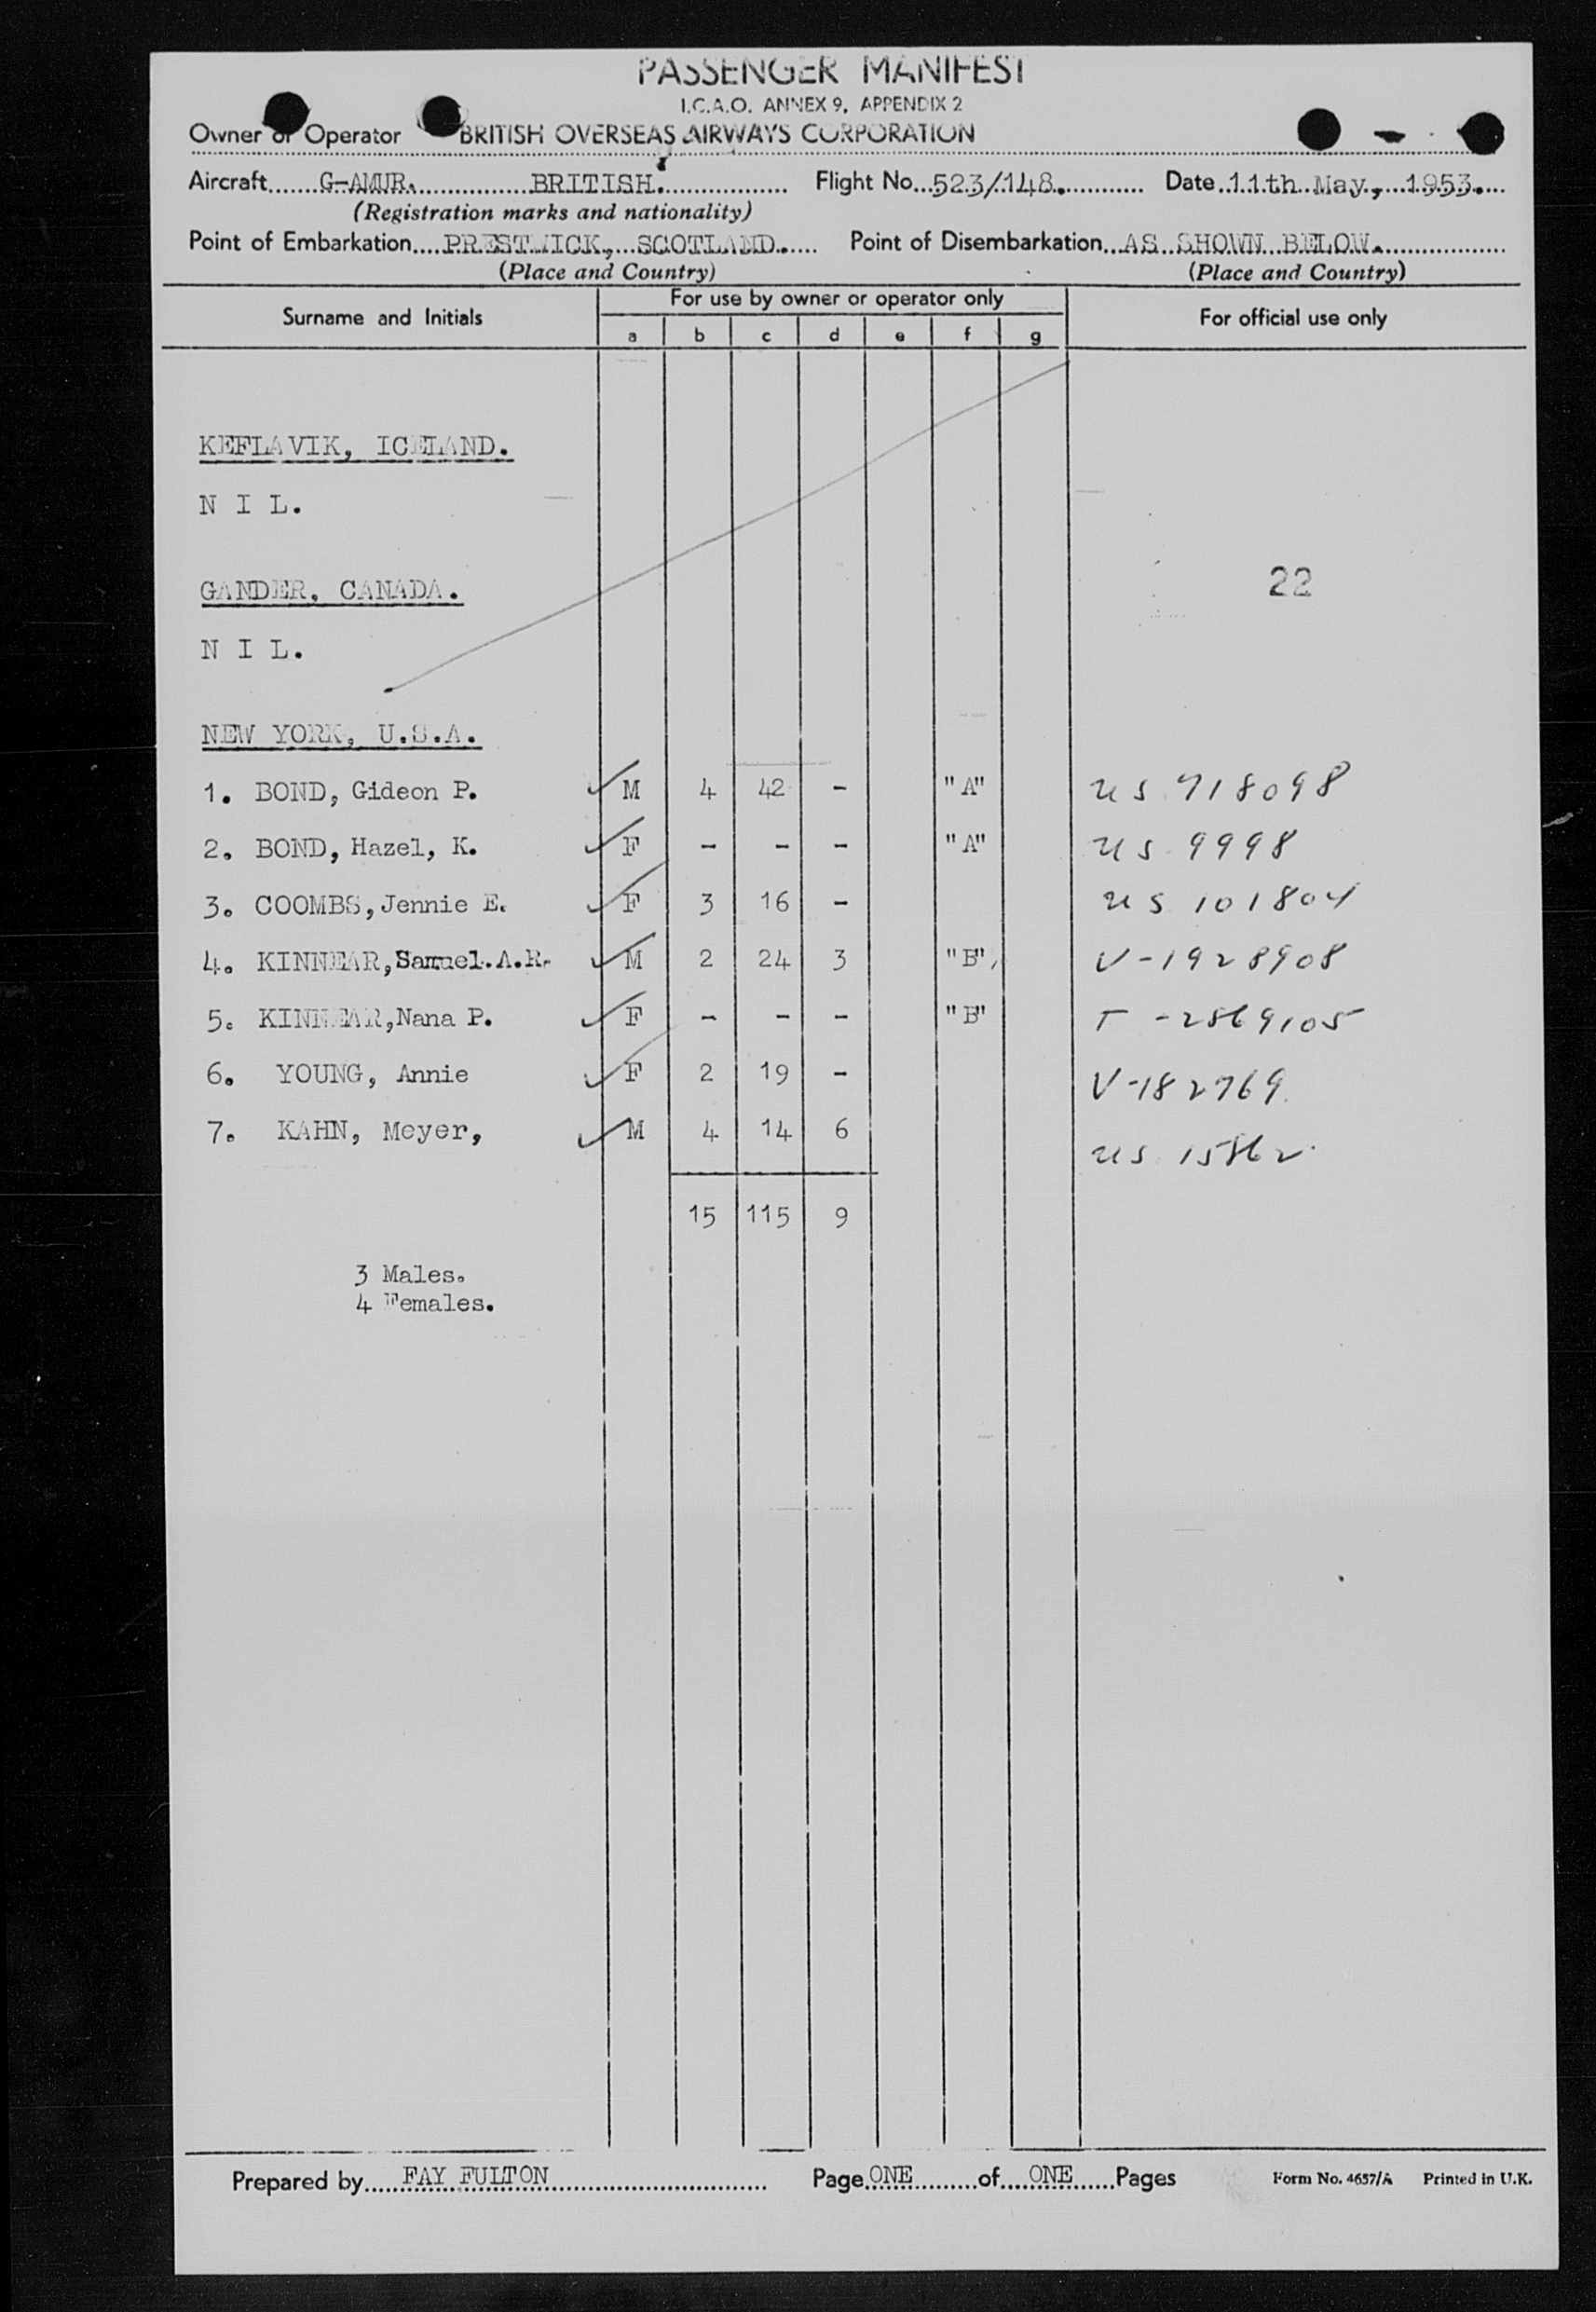 PASSENGER MANIFEST
I.C.A.O. ANNEX 9, APPENDIX 2
Owner or Operator BRITISH OVERSEAS AIRWAYS CORPORATION
Aircraft G-AMUR. BRITISH. Flight No. 523/148. Date 11th May, 1953.
(Registration marks and nationality)
Point of Embarkation PRESTWICK, SCOTLAND. Point of Disembarkation AS SHOWN BELOW.
(Place and Country) (Place and Country)
Surname and Initials For use by owner or operator only For official use only
a b c d e f g
KEFLAVIK, ICELAND.
N I L.
GANDER, CANADA. 22
N I L.
NEW YORK, U.S.A.
1. BOND, Gideon P. M 4 42 - "A" US 718098
2. BOND, Hazel, K. F - - - "A" US 9998
3. COOMBS, Jennie E. F 3 16 - US 101804
4. KINNEAR, Samuel.A.R. M 2 24 3 "B", V-1928908
5. KINNEAR, Nana P. F - - - "B" T-2869105
6. YOUNG, Annie F 2 19 - V-182769
7. KAHN, Meyer, M 4 14 6 US 15862
15 115 9
3 Males.
4 Females.
Prepared by FAY FULTON Page ONE of ONE Pages Form No. 4657/A Printed in U.K.